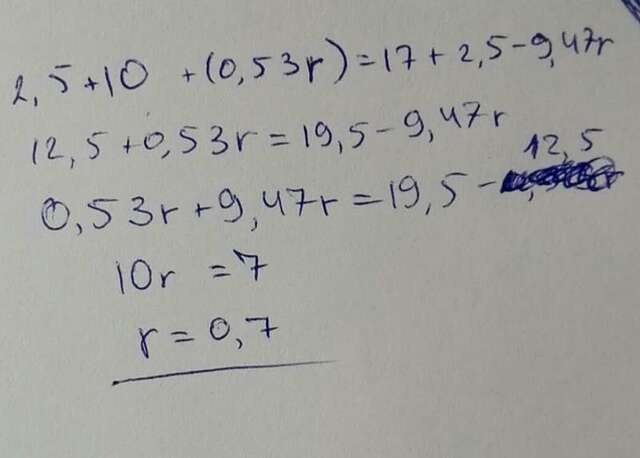 2,5+10 +(0,53r)=17+2,5-9,47r
12,5+0,53r=19,5-9,47r
0,53r+9,47r=19,5-12,5
10r =7
r=0,7